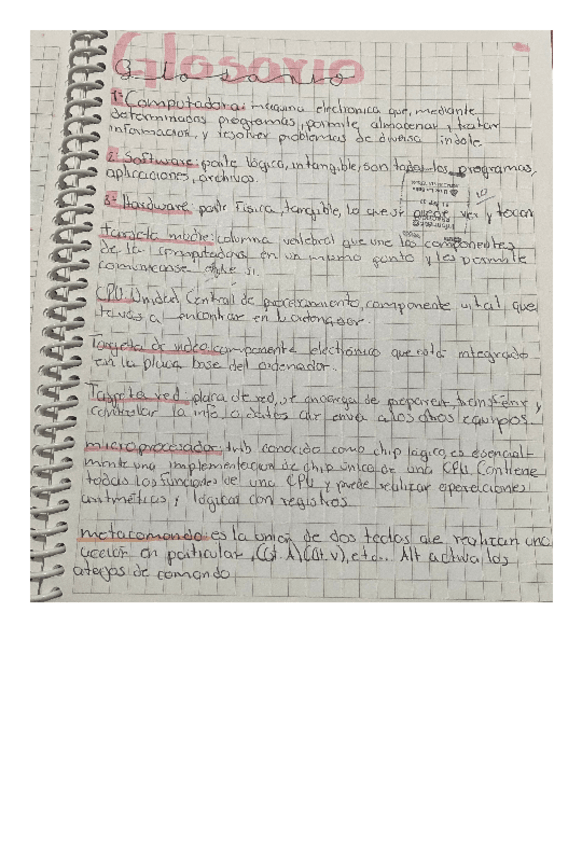 Glosario
Glosario
1- Computadora: máquina electronica que, mediante
determinados programas, permite almacenar y tratar
información, y resolver problemas de diversa índole.
2- Software: parte lógica, intangible, son todos los programas,
aplicaciones, archivos.
3- Hardware: parte física, tangible, lo que se puede ver y tocar
tarjeta madre: columna vertebral que une los componentes
de la computadora en un mismo punto y les permite
comunicarse entre si.
CPU: Unidad Central de procesamiento, componente vital que
vas a encontrar en tu ordenador.
Tarjeta de video: componente electrónico que integrado
en la placa base del ordenador.
Tarjeta red: placa de red, se encarga de preparar, transferir y
controlar la info o datos que envia a los otros equipos.
microprocesador: tmb conocido como chip lógico, es esencial-
mente una implementación de chip único de una CPU. Contiene
todas las funciones de una CPU y puede realizar operaciones
aritméticas y lógicas con registros.
metacomando: es la union de dos teclas que realizan una
acción en particular, (Ctrl. v), etc.. Alt activa los
de comando